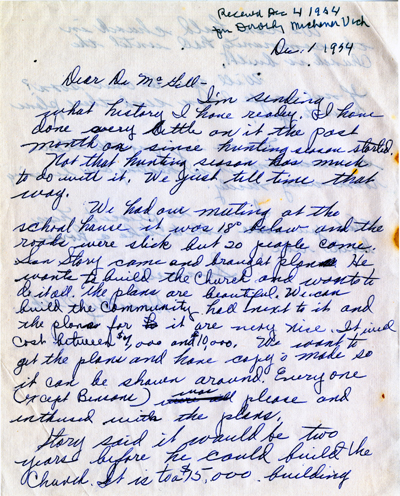 Received Dec 4 1954
Dorothy Michener Vech
Dec. 1 1954
Dear Dr McGill-
I'm sending
what history I have ready. I have
done very little on it the past
month or since hunting season started.
Not that hunting season has much
to do with it. We just tell time that
way.
We had our meeting at the
school house it was 18° below and the
roads were slick but 20 people came.
Story came and brought plans He
wants to build the Church and wants to
do it all. The plans are beautiful. We can
build the Community hall next to it and
the plans for it are very nice. It will
cost between $9,000 and $10,000. We want to
get the plans and have copy's made so
it can be shown around. Every one
(except Bensons) was please and
inthused with the plans.
Story said it would be two
years before he could build the
Church. It is to a $75,000. building